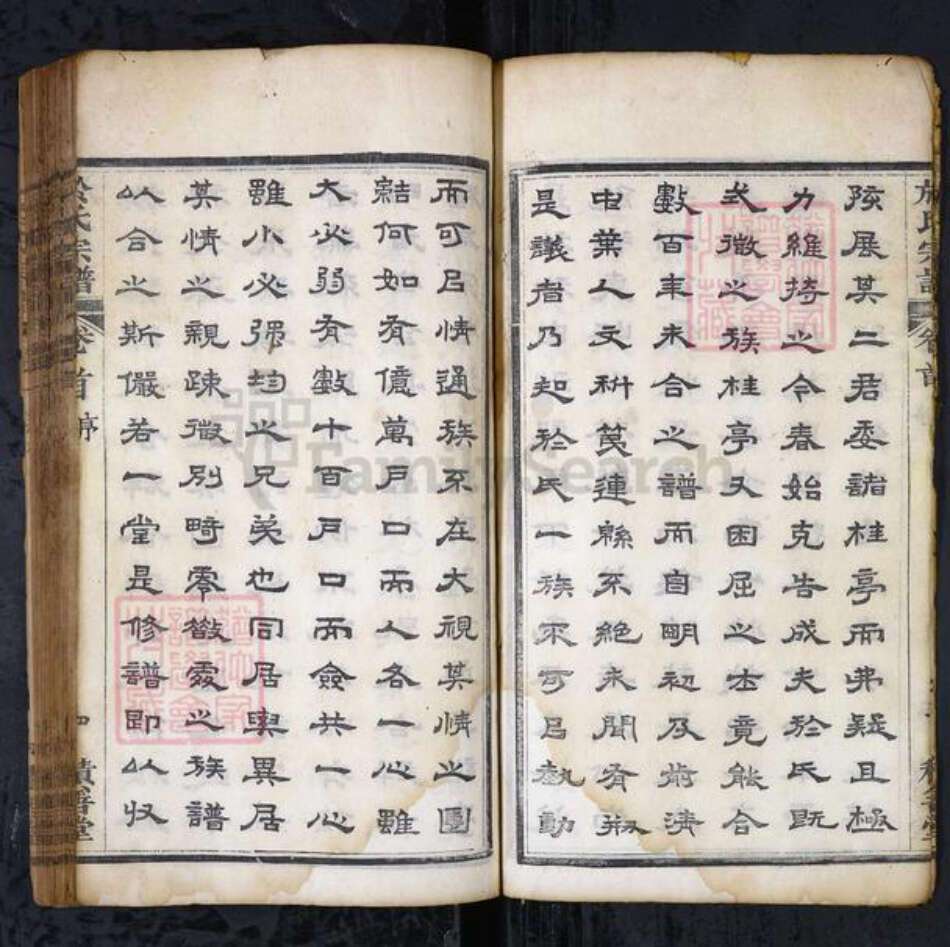 陔展其二君委諸桂亭而弗疑且極
力維持之今春始克告成夫於氏既
式微之族桂亭又困屈之士竟能合
數百年未合之譜而自明初及前清
中葉人文枡莫連緜不絕未聞有
是議者乃起於氏一族不可㠯執動
而可㠯情通族不在大視其情之團
結何如有億萬戶口而人各一心雖
大必弱有數十百戶口而僉共一心
雖小必彊均之兄弟也同居與異居
其情之親疎微別畸零散處之族譜
以合之斯儼若一堂是修譜即以收
於氏宗譜
卷首
序
四
FamilySearch